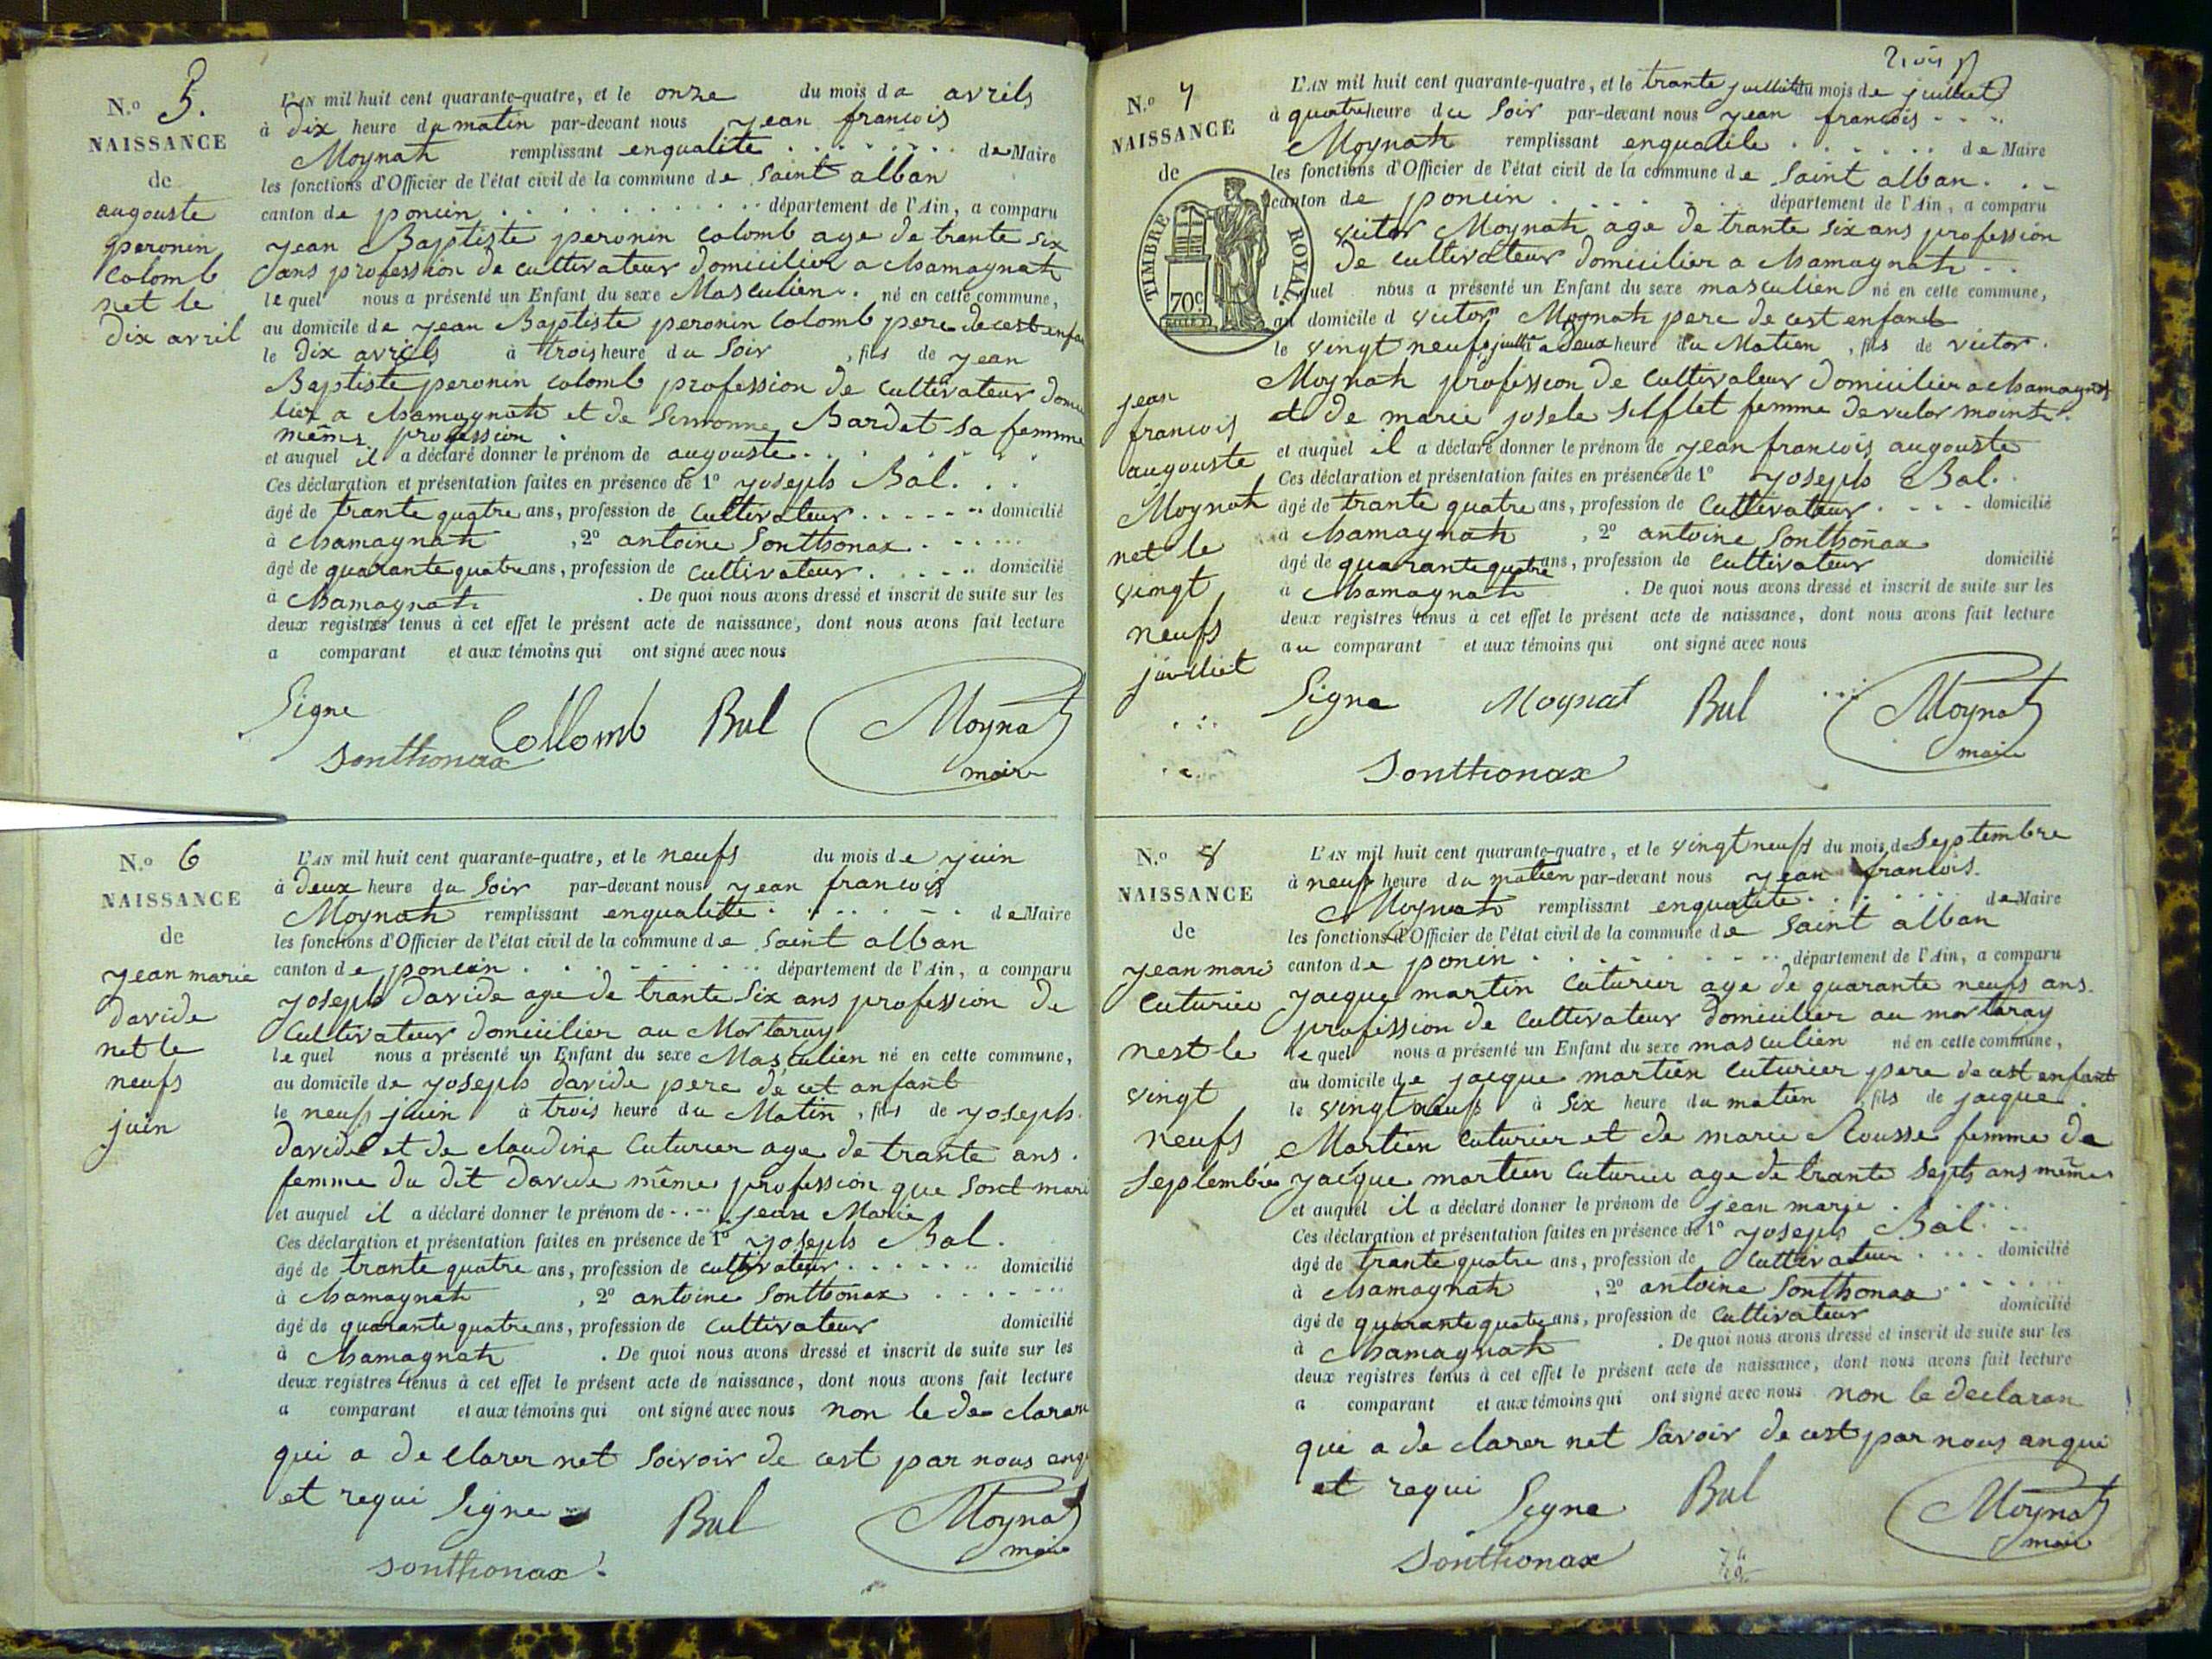 N.o 5.
NAISSANCE
de
augouste
peronin
Colomb
net le
dix avril
L'AN mil huit cent quarante-quatre, et le onze du mois da avrils
à Dix heure du matin par-devant nous yean francois
Moynat remplissant enqualite . . . . . . . . de Maire
les fonctions d'Officier de l'état civil de la commune de Saint alban
canton de poncin . . . . . . . . département de l'Ain, a comparu
yean Baptiste peronin Colomb age de trante six
ans profession de cultivateur domicilier a chamagnat
le quel nous a présenté un Enfant du sexe Masculien . né en cette commune,
au domicile de yean Baptiste peronin Colomb pere de cest enfan
le Dix avrils à trois heure du Soir , fils de yean
Baptiste peronin colomb profession de cultivateur domci
lier a chamagnat et de Simonne Bardet sa femme
même profession
et auquel il a déclaré donner le prénom de augouste . . . . . .
Ces déclaration et présentation faites en présence de 1o yoseph Bal . . .
âgé de trante quatre ans, profession de Cultivateur . . . . . . domicilié
à chamagnat , 2o antoine Sonthonax . . . . .
âgé de quarante quatre ans, profession de cultivateur . . . . . domicilié
à chamagnat . De quoi nous avons dressé et inscrit de suite sur les
deux registres tenus à cet effet le présent acte de naissance, dont nous avons fait lecture
a comparant et aux témoins qui ont signé avec nous
Signe
Sonthonax Collomb Bal Moynat
maire
N.o 6
NAISSANCE
de
yean marie
davide
net le
neufs
juin
L'AN mil huit cent quarante-quatre, et le neufs du mois de yuin
à deux heure du Soir par-devant nous yean francois
Moynat remplissant enqualite . . . . . . . de Maire
les fonctions d'Officier de l'état civil de la commune de Saint alban
canton de poncin . . . . . . . . département de l'Ain, a comparu
yoseph davide age de trante Six ans profession de
Cultivateur domicilier au Mortaray
le quel nous a présenté un Enfant du sexe Masculien né en cette commune,
au domicile de yoseph davide pere de cet anfant
le neufs juin à trois heure du Matin , fils de yoseph
davide et de claudine Cuturier age de trante ans .
femme du dit davide même profession que sont mari
et auquel il a déclaré donner le prénom de . . . . yean Marie
Ces déclaration et présentation faites en présence de 1o yoseph Bal .
âgé de trante quatre ans, profession de cultivateur . . . . . . . domicilié
à chamagnat , 2o antoine Sonthonax . . . . . . .
âgé de quarante quatre ans, profession de cultivateur domicilié
à chamagnat . De quoi nous avons dressé et inscrit de suite sur les
deux registres tenus à cet effet le présent acte de naissance, dont nous avons fait lecture
a comparant et aux témoins qui ont signé avec nous non le de claran
qui a de clarer net Soivoir de cest par nous anq
et requi Signe Bal Moynat
maire
Sonthonax
N.o 7
NAISSANCE
de
TIMBRE ROYAL
70c
jean
francois
augouste
Moynat
net le
vingt
neufs
juilliet
L'AN mil huit cent quarante-quatre, et le trante juilliet du mois de juilliet
à quatre heure du Soir par-devant nous yean francois . . . .
Moynat remplissant enqualite . . . . . . de Maire
les fonctions d'Officier de l'état civil de la commune de Saint alban . . .
canton de poncin . . . . . . . département de l'Ain, a comparu
victor Moynat age de trante six ans profession
de cultivateur domicilier a chamagnat . .
lequel nous a présenté un Enfant du sexe masculien né en cette commune,
au domicile d victor Moynat pere de cest enfant
le vingt neufs juillt a deux heure du Matien , fils de victor .
Moynat profession de Cultivateur domicilier a chamagnat
et de marie josele femme de victor
et auquel il a déclaré donner le prénom de yean francois augouste
Ces déclaration et présentation faites en présence de 1o yoseph Bal . .
âgé de trante quatre ans, profession de Cultivateur . . . . domicilié
à chamagnat , 2o antoine Sonthonax
âgé de quarante quatre ans, profession de cultivateur domicilié
à chamagnat . De quoi nous avons dressé et inscrit de suite sur les
deux registres tenus à cet effet le présent acte de naissance, dont nous avons fait lecture
au comparant et aux témoins qui ont signé avec nous
Signe Moynat Bal Moynat
maire
Sonthonax
N.o 8
NAISSANCE
de
yean mari
Cuturier
nest le
vingt
neufs
Septembre
L'AN mil huit cent quarante-quatre, et le vingt neufs du mois de Septembre
à neufs heure du matien par-devant nous yean francois .
Moynat remplissant enqualite . . . . . . de Maire
les fonctions d'Officier de l'état civil de la commune de Saint alban
canton de poncin . . . . . . . . département de l'Ain, a comparu
yacque martin Cuturier age de quarante neufs ans .
profission de Cultivateur domicilier au mortaray
le quel nous a présenté un Enfant du sexe masculien né en cette commune,
au domicile de jacque martien Cuturier pere de cest enfant
le vingt neufs à Six heure du matien fils de jacque .
Martien Cuturier et de marie Rousse femme de
yacque martien Cuturier age de trante Septs ans même
et auquel il a déclaré donner le prénom de jean marie . . . .
Ces déclaration et présentation faites en présence de 1o yoseph Bal . . .
âgé de trante quatre ans, profession de Cultivateur . . . . domicilié
à chamagnat , 2o antoine Sonthonax . . . . . .
âgé de quarante quatre ans, profession de Cultivateur domicilié
à chamagnat . De quoi nous avons dressé et inscrit de suite sur les
deux registres tenus à cet effet le présent acte de naissance, dont nous avons fait lecture
a comparant et aux témoins qui ont signé avec nous non le declaran
qui a de clarer net Savoir de cest par nous anqui
et requi Signe Bal Moynat
maire
Sonthonax